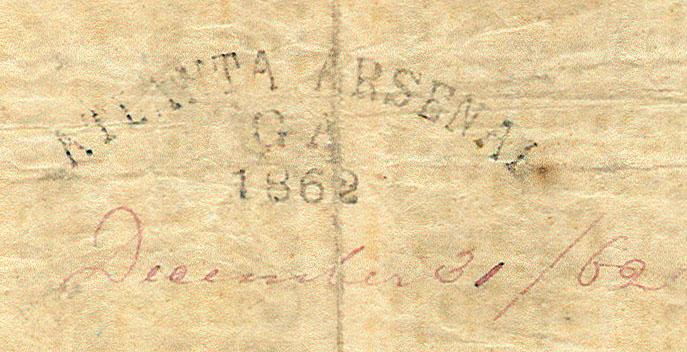 ATLANTA ARSENAL
GA
1862
December 31/62